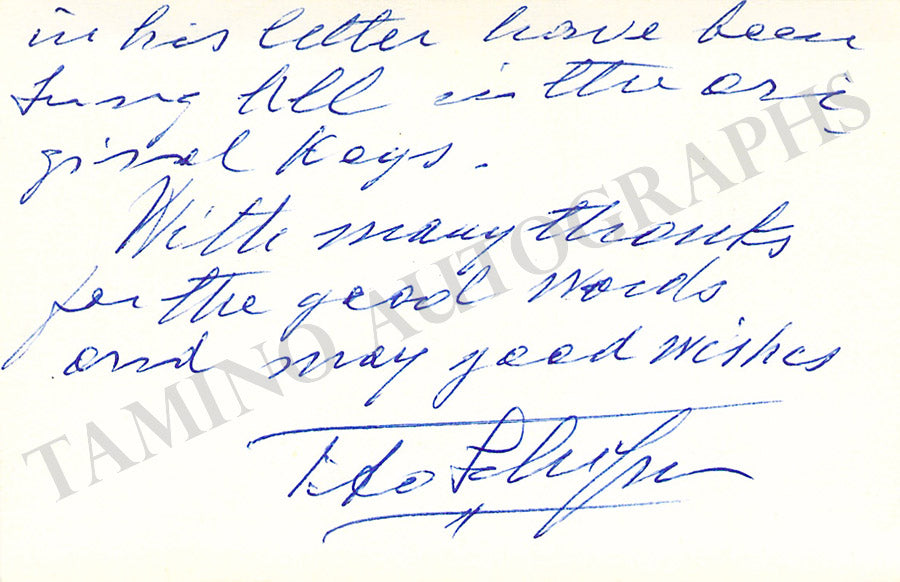 in his letter have been
sung All in the ori
ginal Keys.
With many thanks
for the good words
and may good wishes
Tito Schipa
TAMINO AUTOGRAPHS